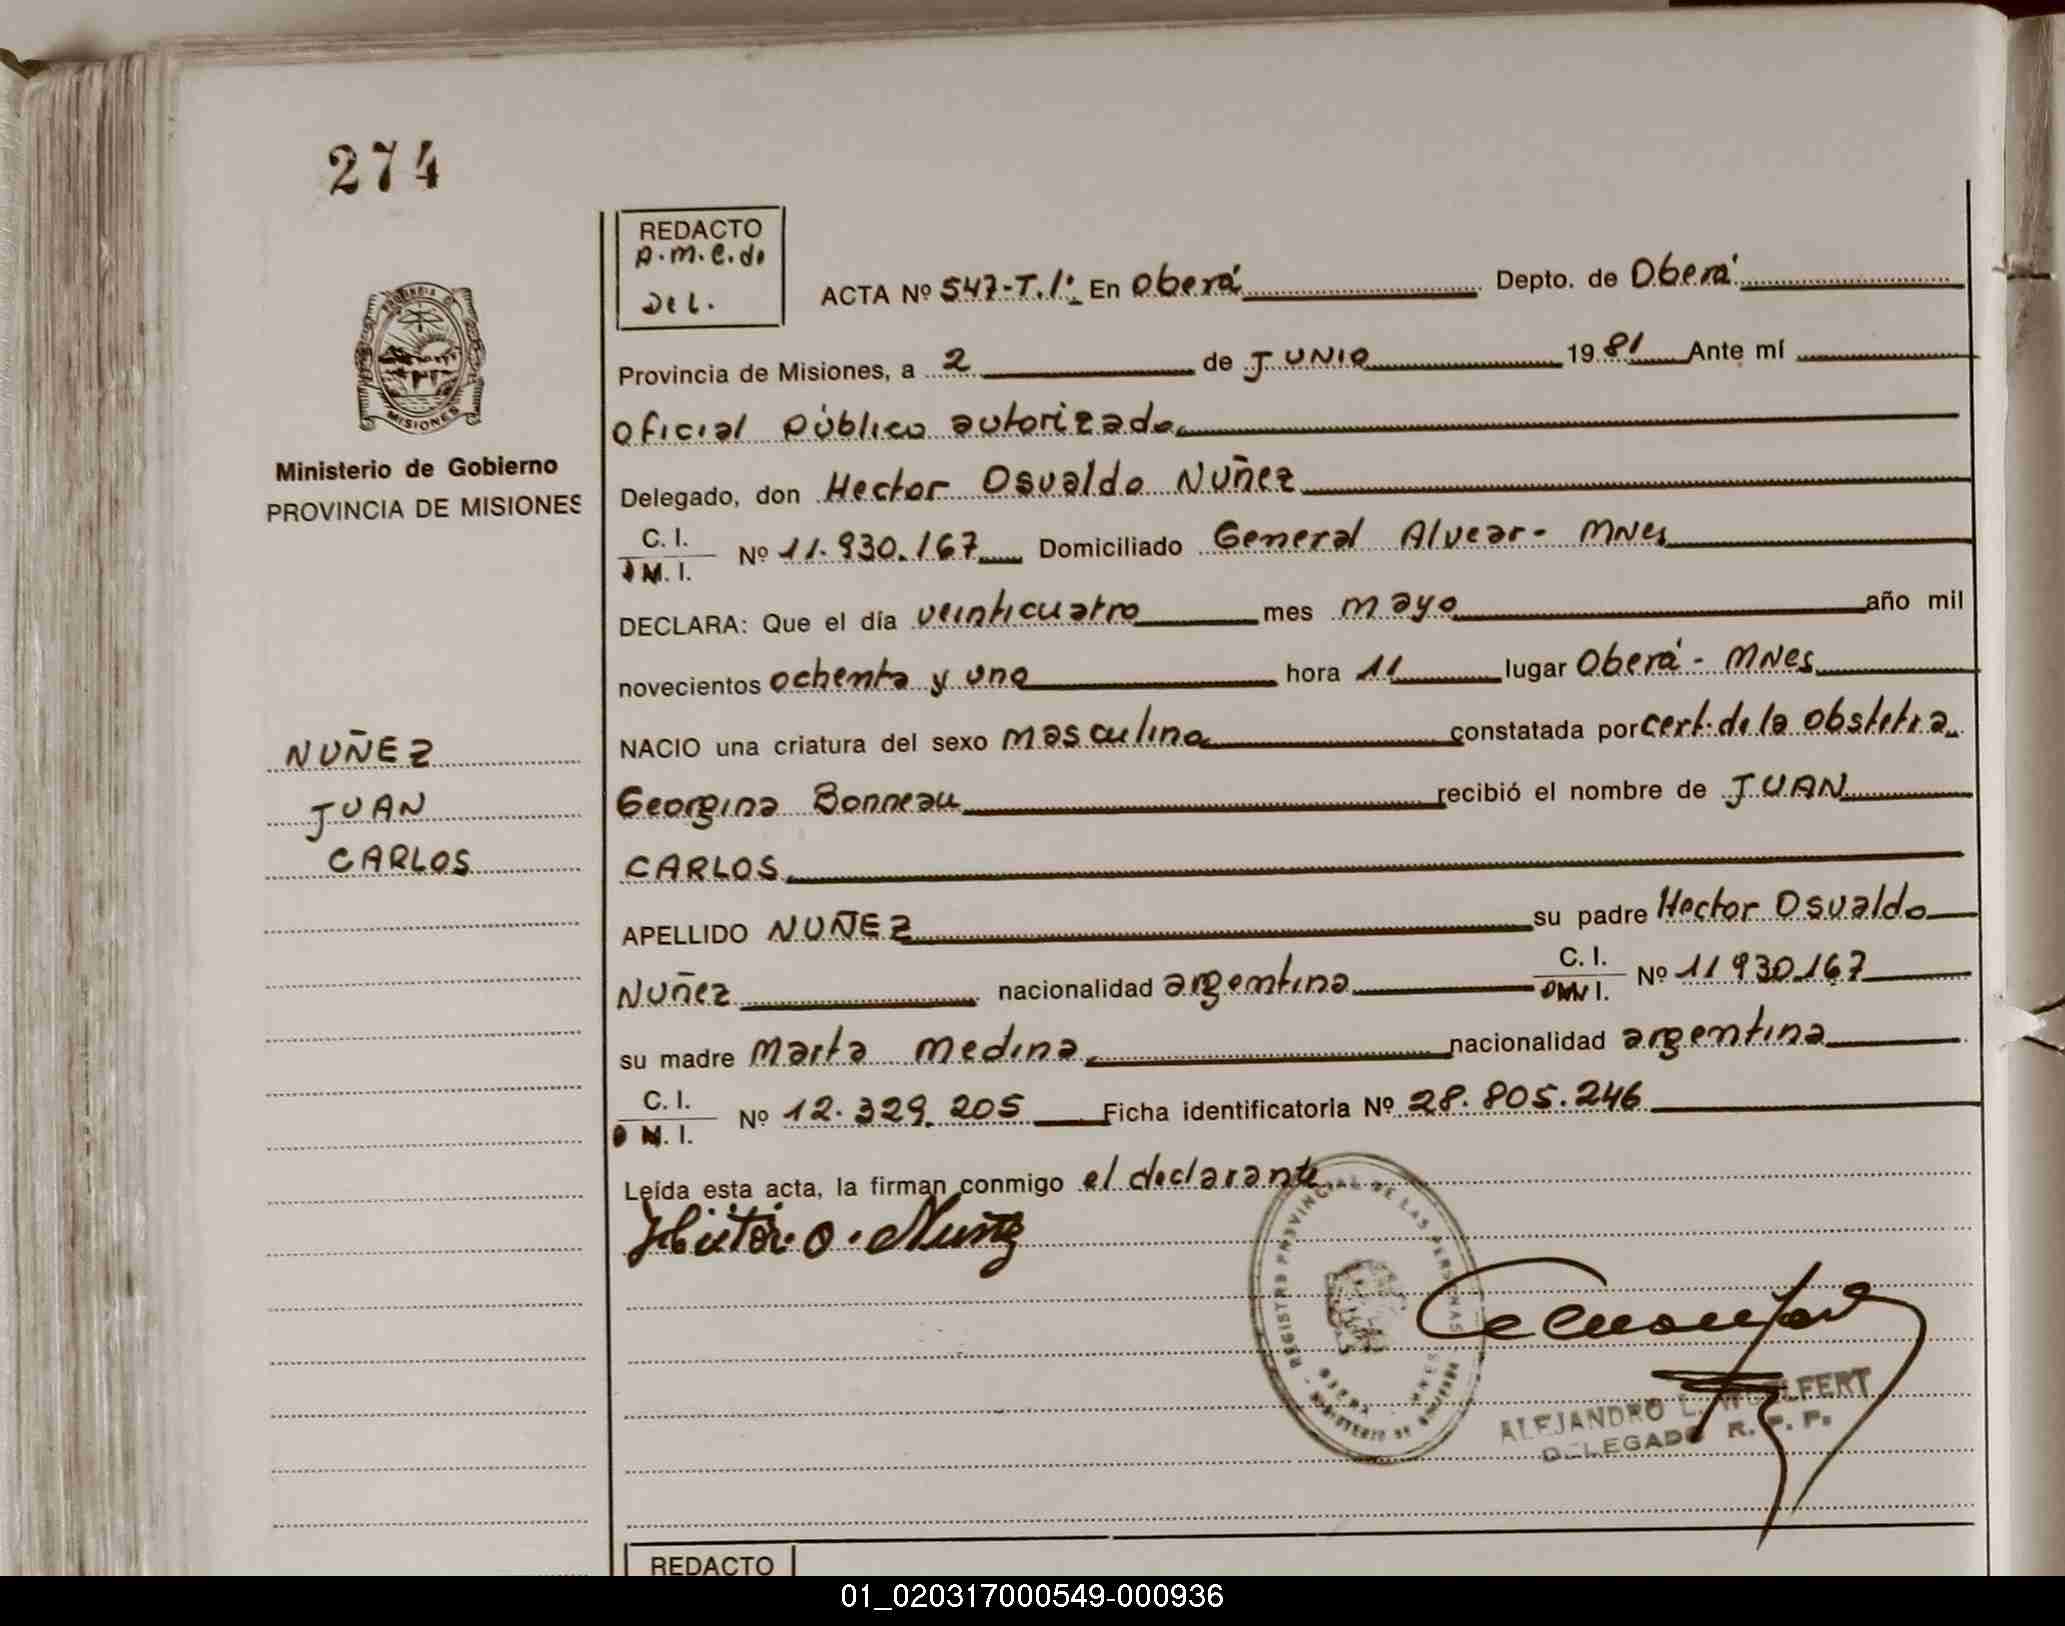 274
REDACTO
A.M.C.de
Del.
ACTA Nº 547-T.1º En Oberá Depto. de Oberá
Provincia de Misiones, a 2 de JUNIO 1981 Ante mí
Oficial Público autorizado
Delegado, don Hector Osvaldo Nuñez
C. I.
M. I.
Nº 11.930.167 Domiciliado General Alvear - MNes
DECLARA: Que el día veinticuatro mes mayo año mil
novecientos ochenta y uno hora 11 lugar Oberá - MNes
NACIO una criatura del sexo masculino constatada por cert. de la obstetra
Georgina Bonneau recibió el nombre de JUAN
CARLOS
APELLIDO NUÑEZ su padre Hector Osvaldo
Nuñez nacionalidad argentina C. I. Nº 11930167
su madre Marta Medina nacionalidad argentina
C. I.
M. I.
Nº 12.329.205 Ficha identificatoria Nº 28.805.246
Leída esta acta, la firman conmigo el declarante
Héctor O. Nuñez
PROVINCIA DE
MISIONES
Ministerio de Gobierno
PROVINCIA DE MISIONES
NUÑEZ
JUAN
CARLOS
REGISTRO PROVINCIAL DE LAS PERSONAS
MINISTERIO DE GOBIERNO
OBERA - MNES
ALEJANDRO L. WOELFERT
DELEGADO R. P. P.
REDACTO
01_020317000549-000936